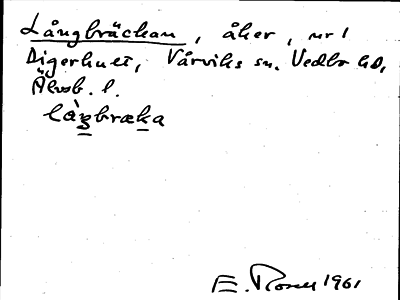 Långbräckan, åker, nr 1
Digerhult, Vårviks sn. Vedbo hd,
Älvsb. l.
làŋbræka
E. Rosell 1961